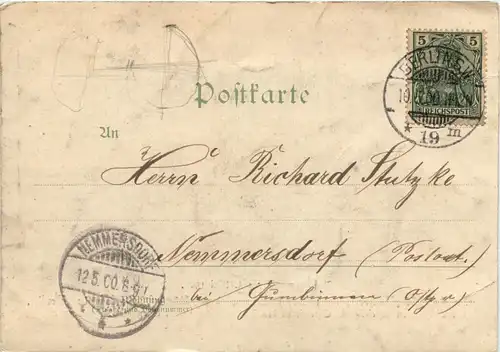 5 5
REICHSPOST
BERLIN S.W.
19 m
Postkarte
An
Herrn Richard Stutzke
Nemmersdorf (Postamt.)
bei Gumbinnen (Ostpr.)
NEMMERSDORF
12 5.00.